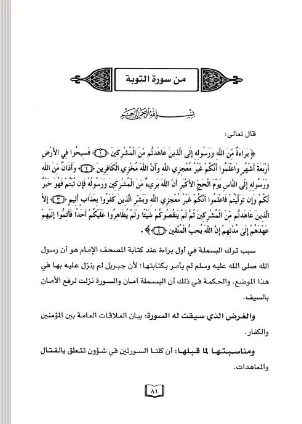 من سورة التوبة
قال تعالى:
﴿ بَرَاءَةٌ مِّنَ اللَّهِ وَرَسُولِهِ إِلَى الَّذِينَ عَاهَدتُّم مِّنَ الْمُشْرِكِينَ (١) فَسِيحُوا فِي الأَرْضِ
أَرْبَعَةَ أَشْهُرٍ وَاعْلَمُوا أَنَّكُمْ غَيْرُ مُعْجِزِي اللَّهِ وَأَنَّ اللَّهَ مُخْزِي الْكَافِرِينَ (٢) وَأَذَانٌ مِّنَ اللَّهِ
وَرَسُولِهِ إِلَى النَّاسِ يَوْمَ الْحَجِّ الأَكْبَرِ أَنَّ اللَّهَ بَرِيءٌ مِّنَ الْمُشْرِكِينَ وَرَسُولُهُ فَإِن تُبْتُمْ فَهُوَ خَيْرٌ
لَّكُمْ وَإِن تَوَلَّيْتُمْ فَاعْلَمُوا أَنَّكُمْ غَيْرُ مُعْجِزِي اللَّهِ وَبَشِّرِ الَّذِينَ كَفَرُوا بِعَذَابٍ أَلِيمٍ (٣) إِلاَّ
الَّذِينَ عَاهَدتُّم مِّنَ الْمُشْرِكِينَ ثُمَّ لَمْ يَنقُصُوكُمْ شَيْئًا وَلَمْ يُظَاهِرُوا عَلَيْكُمْ أَحَدًا فَأَتِمُّوا إِلَيْهِمْ
عَهْدَهُمْ إِلَى مُدَّتِهِمْ إِنَّ اللَّهَ يُحِبُّ الْمُتَّقِينَ (٤) ﴾
سبب ترك البسملة في أول براءة عند كتابة المصحف الإمام هو أن رسول
الله صلى الله عليه وسلم لم يأمر بكتابتها؛ لأن جبريل لم ينزل عليه بها في
هذا الموضع. والحكمة في ذلك أن البسملة أمان والسورة نزلت لرفع الأمان
بالسيف.
والغرض الذي سيقت له السورة: بيان العلاقات العامة بين المؤمنين
والكفار.
ومناسبتها لما قبلها: أن كلتا السورتين في شؤون تتعلق بالقتال
والمعاهدات.
٨١